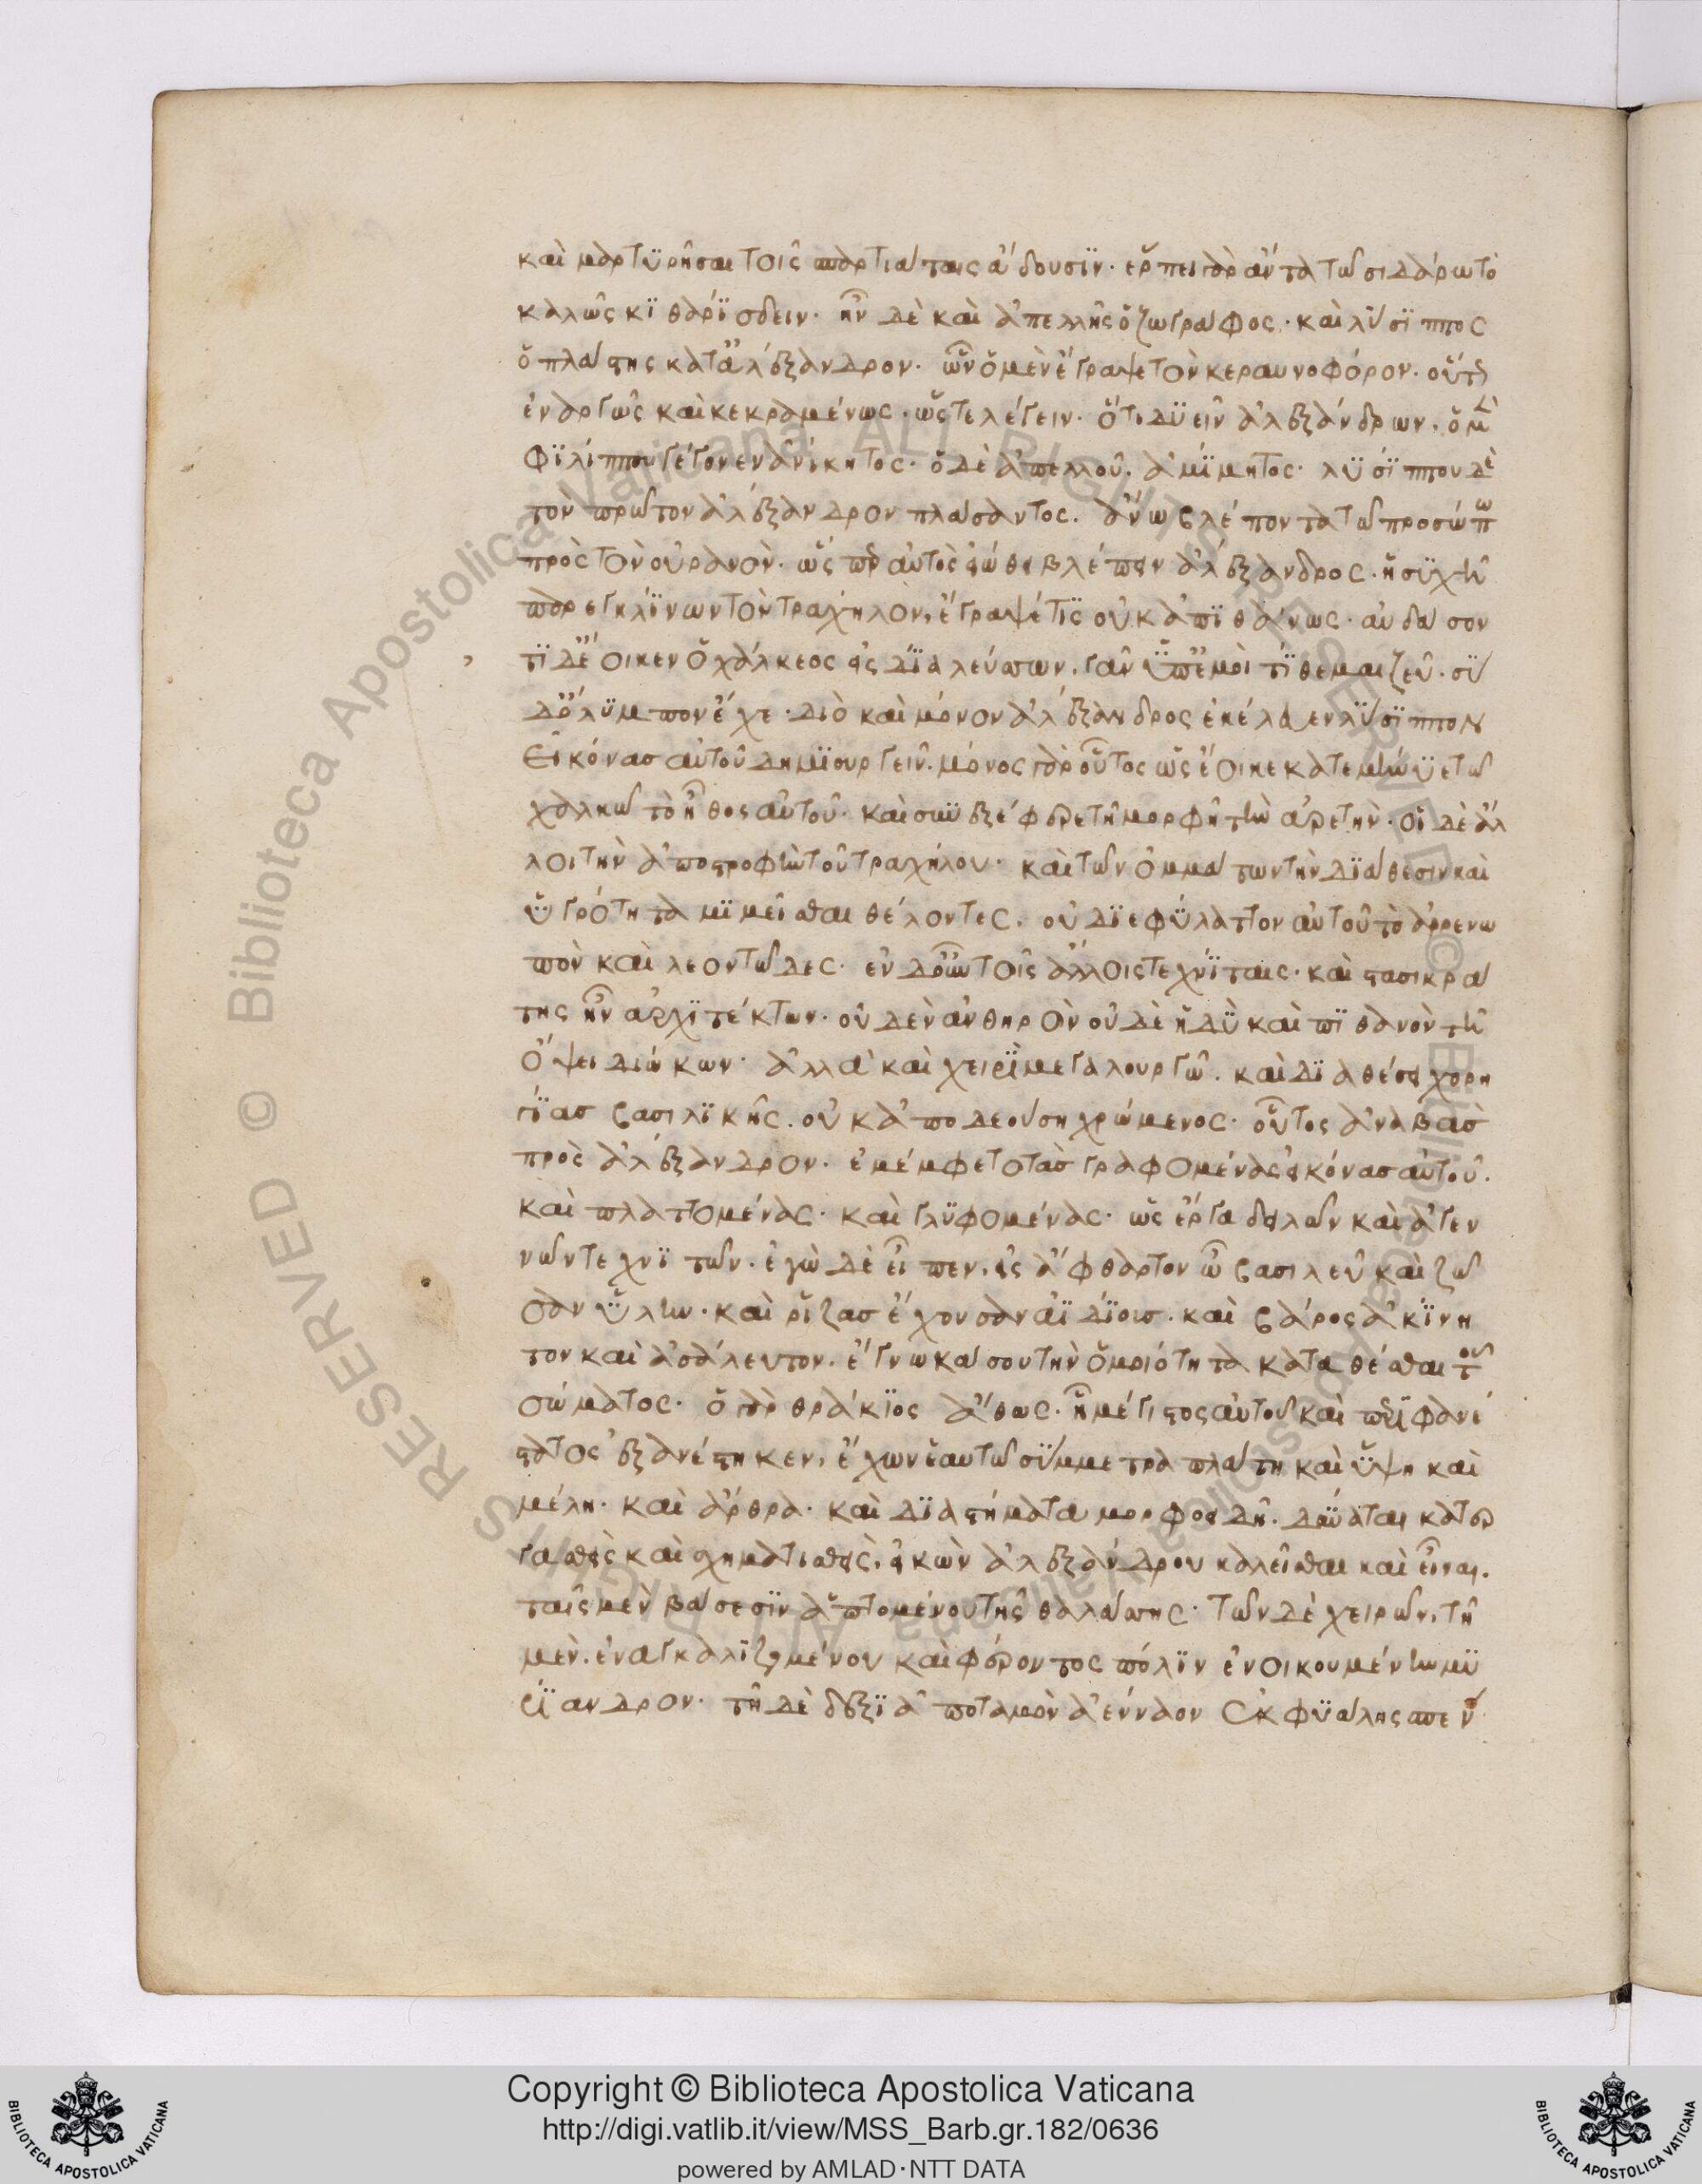 καὶ μαρτϋρῆσαι τοῖς σπαρτιάταις ἄδουσϊν· ἕρπει γὰρ ἄντα τῶ σιδάρω τὸ
καλῶς κϊθαρΐσδειν· ἦν δὲ καὶ ἀπελλῆς ὁ ζωγράφος· καὶ λύσϊππος
ὁ πλάστης κατὰ ἀλέξανδρον· ὧν ὁ μὲν ἔγραψε τὸν κεραυνοφόρον· οὕτως
ἐναργῶς καὶ κεκραμένως· ὥστε λέγειν· ὅτι δϋεῖν ἀλεξάνδρων, ὁ μὲν
φϊλίππου γέγονεν ἀνίκητος· ὁ δὲ ἀπελλοῦ, ἀμΐμητος· λϋσΐππου δὲ
τὸν πρῶτον ἀλέξανδρον πλάσαντος. ἄνω βλέποντα τῶ προσώπω
πρὸς τὸν οὐρανὸν· ὥσπερ αὐτὸς εἰώθει βλέπειν ἀλέξανδρος· ἡσϋχῆ
παρεγκλΐνων τὸν τράχηλον, ἔγραψέ τις οὐκ ἀπϊθάνως· αὐδάσον
τϊ δ' ἔοικεν ὁ χάλκεος εἰς δΐα λεύσσων, γᾶν ὑπ' ἐμοὶ τΐθεμαι ζεῦ· σὺ
δ' ὄλϋμπον ἔχε· διὸ καὶ μόνον ἀλέξανδρος ἐκέλευεν λύσϊππον
εἰκόνασ αὐτοῦ δημϊουργεῖν. μόνος γὰρ οὗτος ὡς ἔοικε κατεμήνϋε τῶ
χαλκῶ τὸ ἦθος αὐτοῦ· καὶ συνεξέφερε τῆ μορφῆ τὴν ἀρετὴν· οἱ δὲ ἄλ
λοι τὴν ἀποστροφὴν τοῦ τραχήλου· καὶ τῶν ὀμμάτων τὴν δϊάθεσιν καὶ
ὑγρότητα μϊμεῖσθαι θέλοντες. οὐ δϊεφύλαττον αὐτοῦ τὸ ἀρρενω
πὸν καὶ λεοντῶδες· ἐν δ' οὖν τοῖς ἄλλοις τεχνΐταις· καὶ στασικρά
της ἦν ἀρχϊτέκτων· οὐδὲν ἀνθηρὸν οὐδὲ ἡδὺ καὶ πϊθανὸν τῆ
ὄψει διώκων· ἀλλὰ καὶ χειρὶ μεγαλουργῶ. καὶ δϊαθέσει χορη
γΐασ βασιλϊκῆς. οὐκ ἀποδεούση χρώμενος· οὗτος ἀναβὰσ
πρὸς ἀλέξανδρον· ἐμέμφετο τὰσ γραφομένας εἰκόνασ αὐτοῦ.
καὶ πλαττομένας· καὶ γλϋφομένας· ὡς ἔργα δειλῶν καὶ ἀγεν
νῶν τεχνϊτῶν· ἐγὼ δὲ εἶπεν, εἰς ἄφθαρτον ὦ βασιλεῦ καὶ ζῶ
σαν ὕλην· καὶ ῥίζασ ἔχουσαν ἀϊδΐοισ. καὶ βάρος ἀκΐνη
τον καὶ ἀσάλευτον. ἔγνωκά σου τὴν ὁμοιότητα καταθέσθαι τοῦ
σώματος· ὁ γὰρ θράκϊος ἄθως. ἧ μέγιστος αὐτοῦ καὶ περϊφανέ
στατος ἐξανέστηκεν, ἔχων ἑαυτῶ σύμμετρα πλάτη καὶ ὕψη καὶ
μέλη· καὶ ἄρθρα· καὶ δϊαστήματα μορφοειδῆ. δύναται κατερ
γασθεὶς καὶ σχηματισθεὶς, εἰκὼν ἀλεξάνδρου καλεῖσθαι καὶ εἶναι.
ταῖς μὲν βάσεσϊν ἁπτομένου τῆς θαλάσσης· τῶν δὲ χειρῶν, τῆ
μὲν, ἐναγκαλϊζομένου καὶ φέροντος πόλϊν ἐνοικουμένην μϋ
ρΐανδρον· τῆ δὲ δεξϊᾶ ποταμὸν ἀένναον ἐκ φϋάλης σπεν